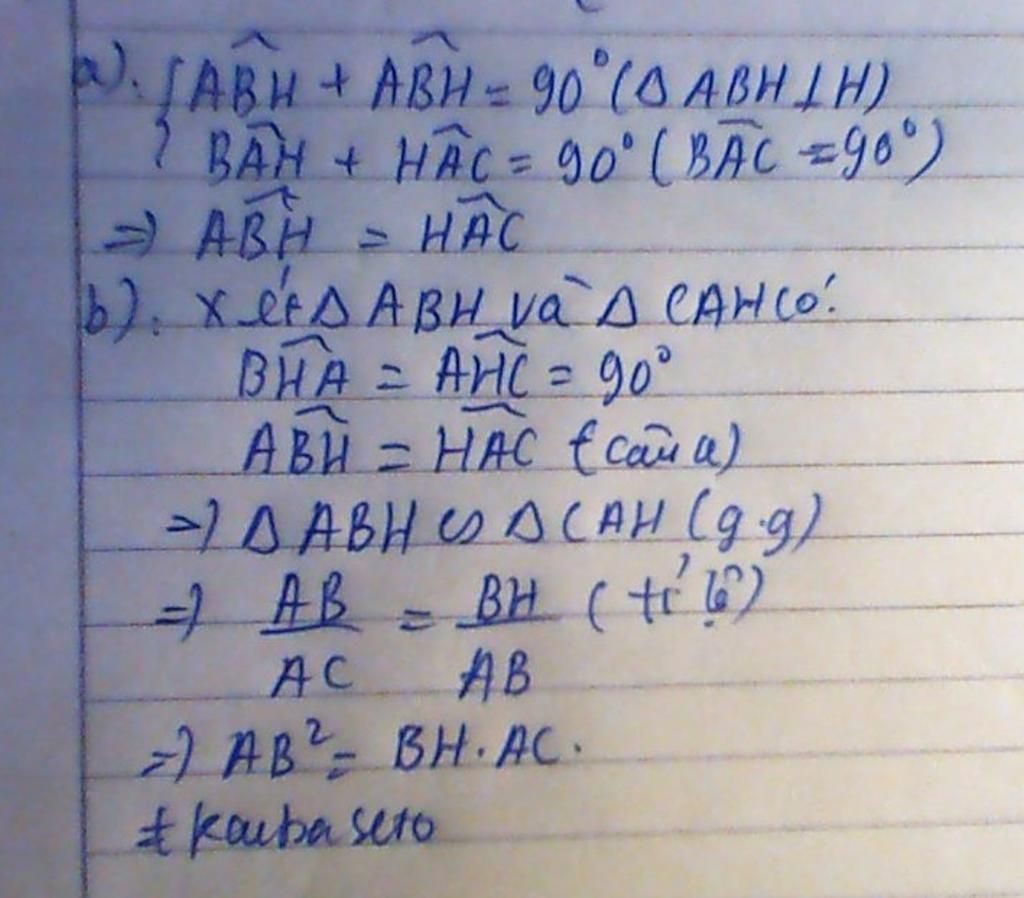 a). { ABH + ABH = 90° (Δ ABH ⊥ H)
BAH + HAC = 90° (BAC = 90°)
=> ABH = HAC
b). Xét Δ ABH và Δ CAH có:
BHA = AHC = 90°
ABH = HAC (câu a)
=> Δ ABH ∽ Δ CAH (g.g)
=> AB/AC = BH/AB (tỉ lệ)
=> AB² = BH.AC.
± kaibaseto